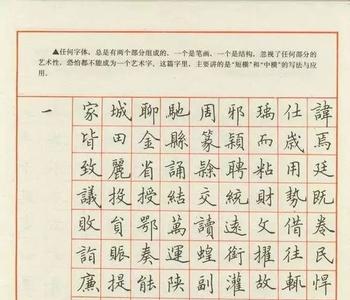 ▲任何字体，总是有两个部分组成的，一个是笔画，一个是结构，忽视了任何部分的
艺术性，恐怕都不能成为一个艺术字，这篇字里，主要讲的是“短横”和“中横”的写法与应
用。
一
家城聊馳周邪瑀仕諱
皆田金縣篆穎而歲焉
致麗省誦縣聘粘用廷
議投授結交統財勢既
敗貟鄂萬讀遠文借卷
詣賑奏運蝗銜擢往民
廉提能陕副灌故輒悍